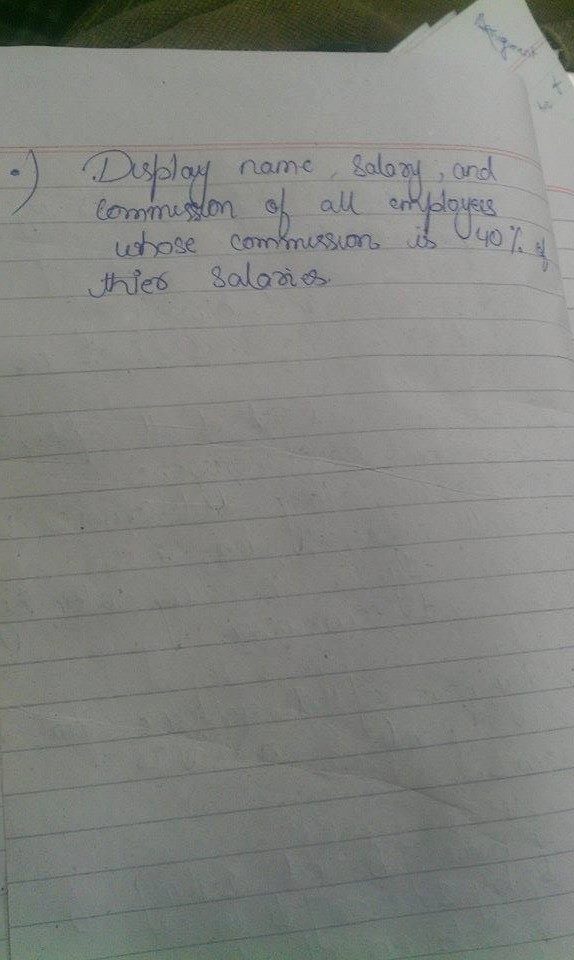 Assignment
•) Display name, salary, and
commission of all employees
whose commission is 40% of
thier salaries.